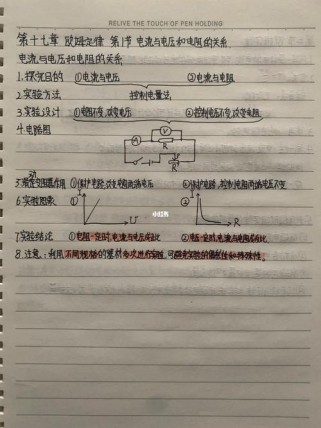 RELIVE THE TOUCH OF PEN HOLDING
第十七章 欧姆定律 第1节 电流与电压和电阻的关系
电流与电压和电阻的关系
1.探究目的 ①电流与电压 ②电流与电阻
2.实验方法 控制变量法
3.实验设计 ①电阻不变,改变电压 ②控制电压不变,改变电阻
4.电路图
V
A R
R
5.滑动变阻器作用 ①保护电路,改变电阻两端电压 ②保护电路,控制电阻两端电压不变
6.实验图象 ① I U ② I R
小红书
7.实验结论 ①电阻一定时,电流与电压成正比 ②电压一定时,电流与电阻成反比
8.注意:利用不同规格的器材多次进行实验,可避免实验的偶然性和特殊性。